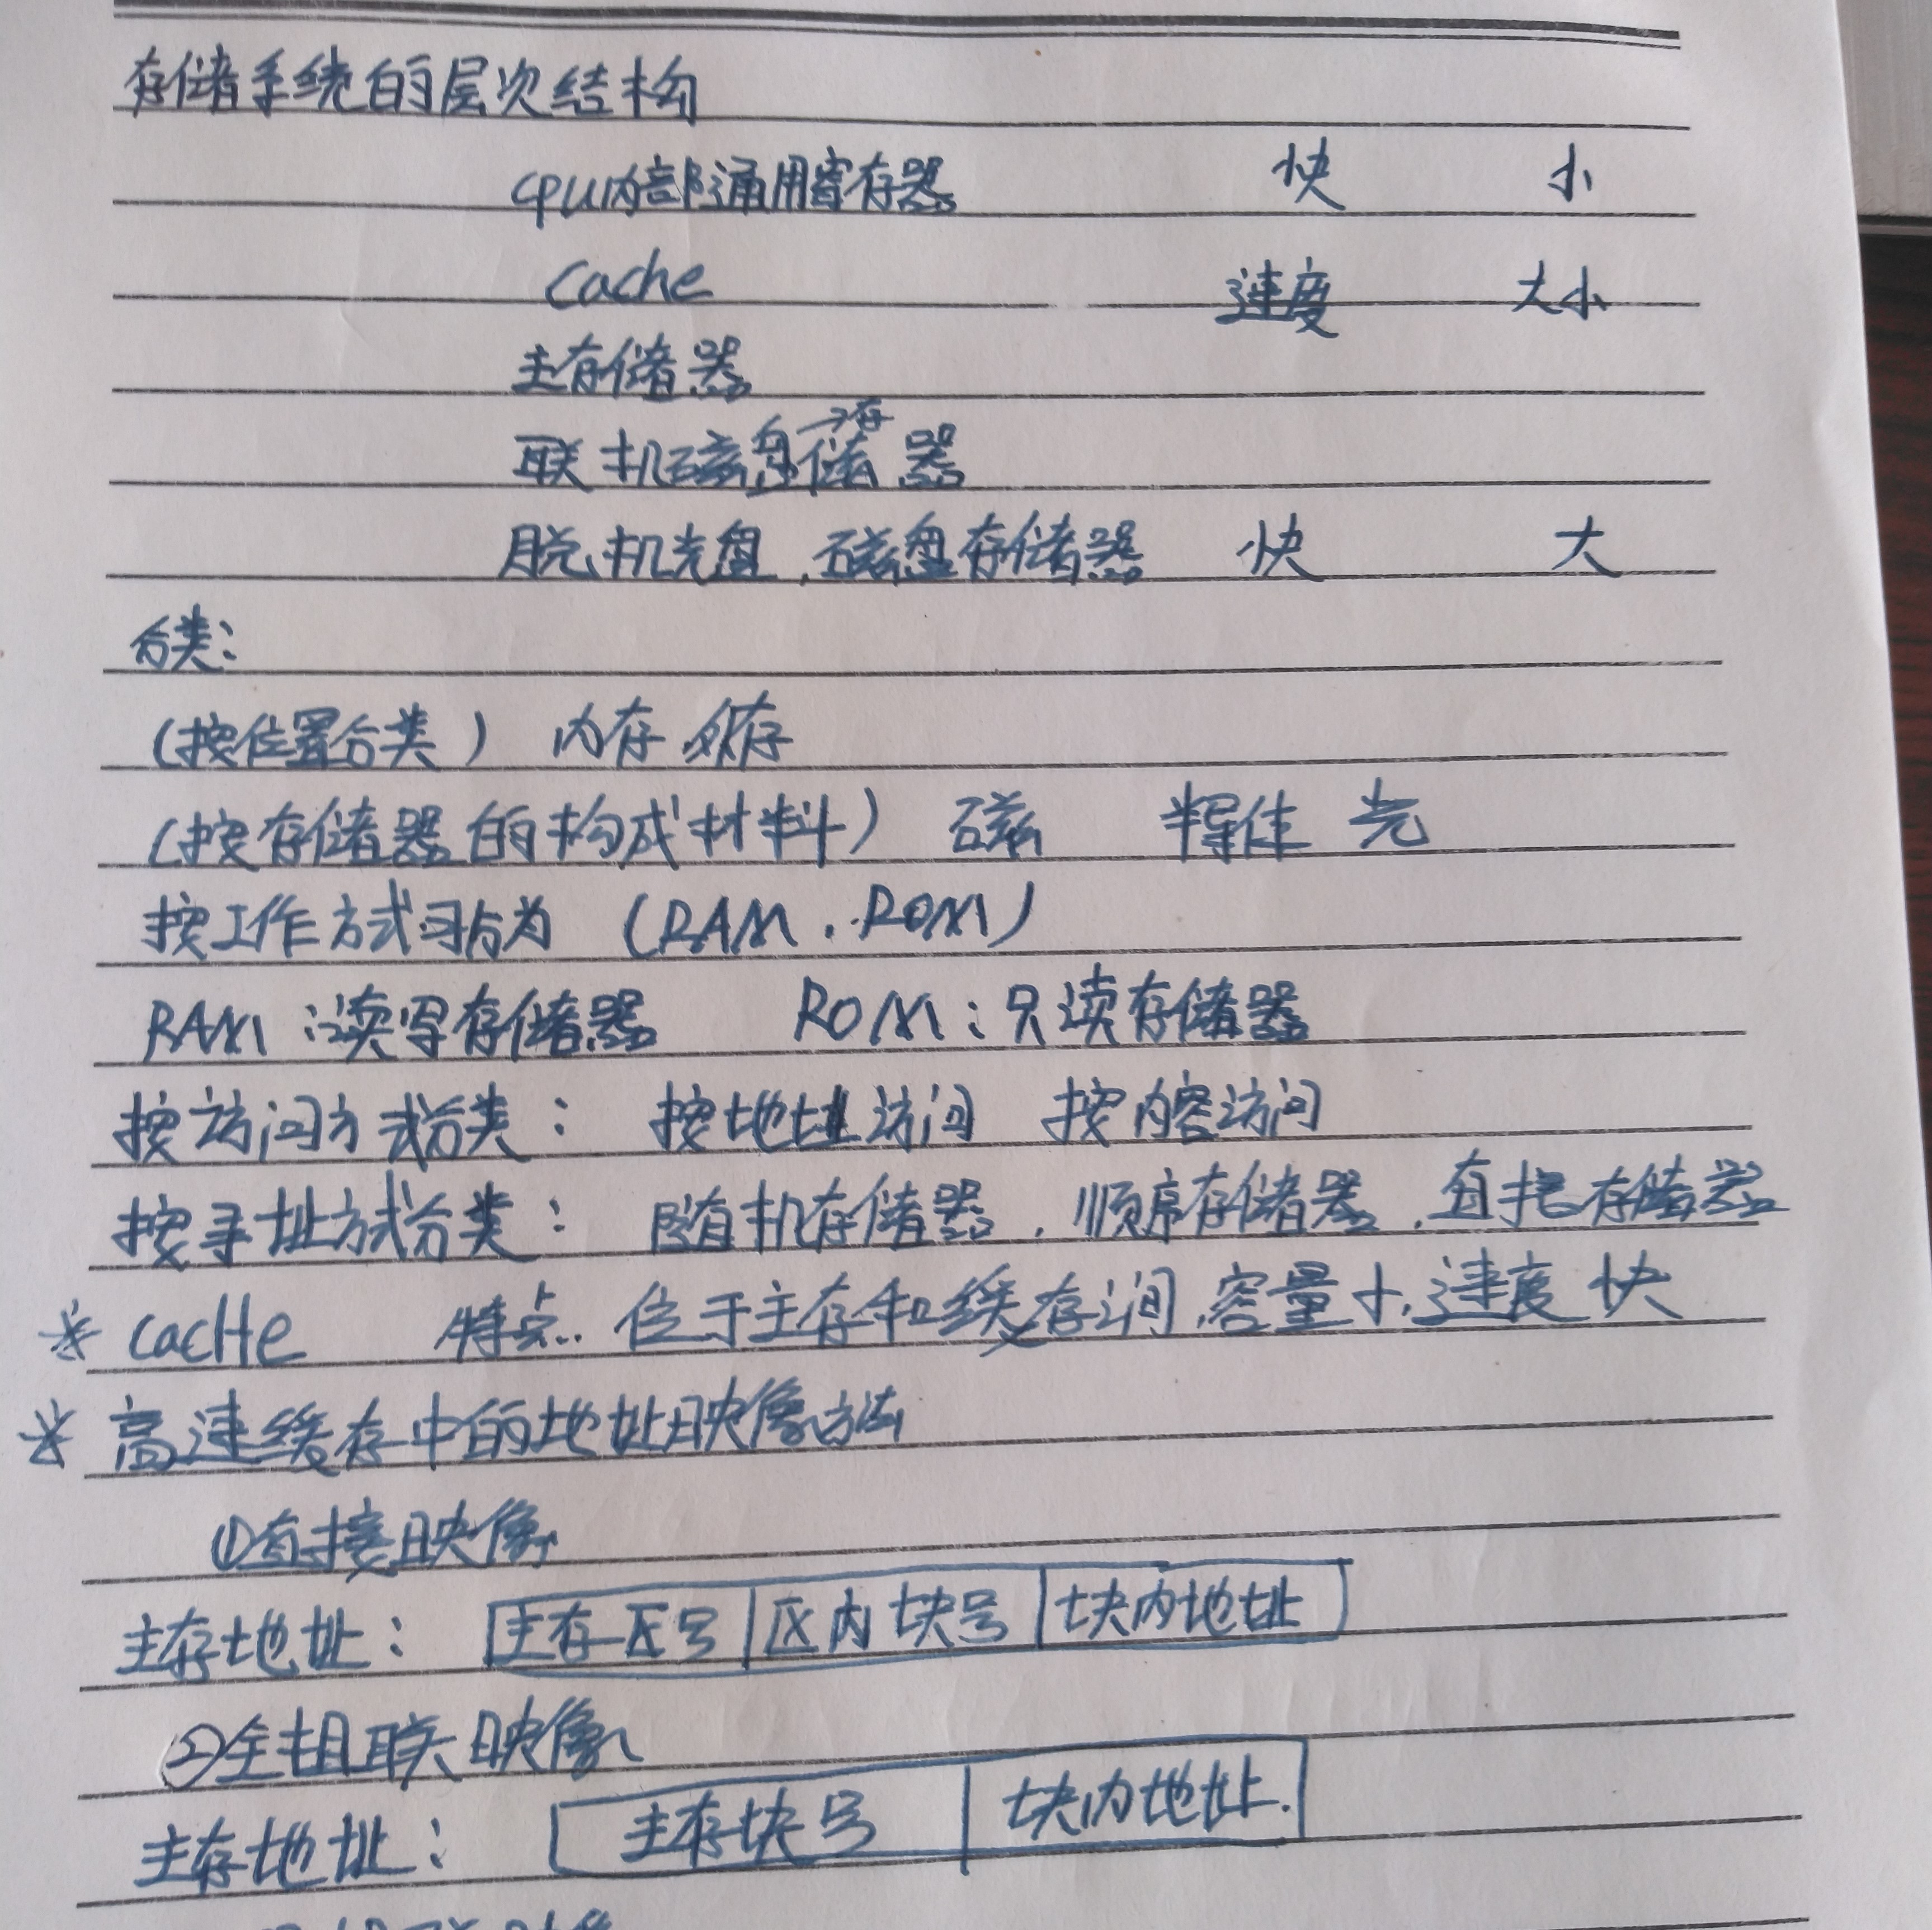 存储系统的层次结构
CPU内部通用寄存器 快 小
Cache 速度 大小
主存储器
联机磁盘存储器
脱机光盘，磁盘存储器 快 大
分类：
（按位置分类） 内存 外存
（按存储器的构成材料） 磁 半导体 光
按工作方式可分为 （RAM．ROM）
RAM：读写存储器 ROM：只读存储器
按访问方式分类： 按地址访问 按内容访问
按寻址方式分类： 随机存储器，顺序存储器，直接存储器
* cacHe 特点．．位于主存和缓存之间，容量小，速度快
* 高速缓存中的地址映像方法
①直接映像
主存地址： 主存区号 区内块号 块内地址
②全相联映像
主存地址： 主存块号 块内地址．